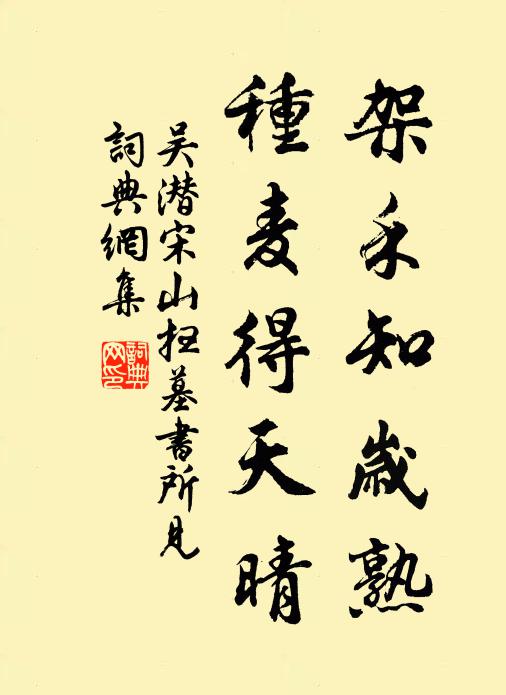 架禾知歲熟
種麦得天晴
吴潛宋山扫墓書所見
詞典網集
詞典
网印